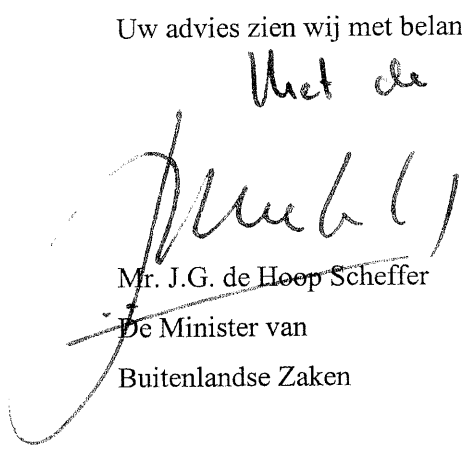 Uw advies zien wij met belan
Met de
Mr. J.G. de Hoop Scheffer
De Minister van
Buitenlandse Zaken